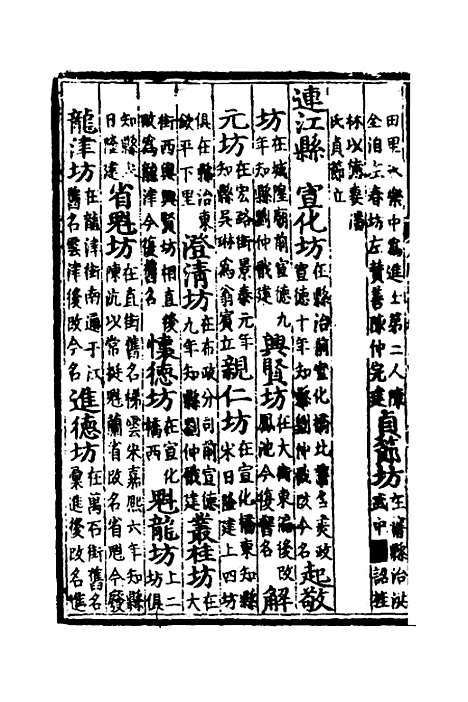 田里永樂中為進士第二人陳
全洎左春坊左贊善陳仲完建
貞節坊
在舊縣治洪
武中 詔旌
林以德妻潘
氏貞節立
連江縣 宣化坊
在縣治前宣化橋北舊名爽政
宣德十年知縣劉仲戩改今名
起敬
坊
在城隍廟前宣德九
年知縣劉仲戩建
興賢坊
在大街東偏後改
鳳池今復舊名
解
元坊
在宏路街景泰元年
知縣吳琳為翁賓立
親仁坊
在宣化橋東知縣
宋日隆建上四坊
俱在縣治東
欽平下里
澄清坊
在布政分司前宣德
九年知縣劉仲戩建
叢桂坊
在
大
街西與興賢坊相直後
改為龍津今復舊名
懷德坊
在宣化
橋西
魁龍坊
上二
坊俱
知縣
日隆建
省魁坊
在直街舊名梯雲宋嘉熙六年知縣
陳沆以常挺魁蘭省改名省魁今廢
龍津坊
在龍津街南通于江
舊名雲津後改今名
進德坊
在萬石街舊名
進後改名進